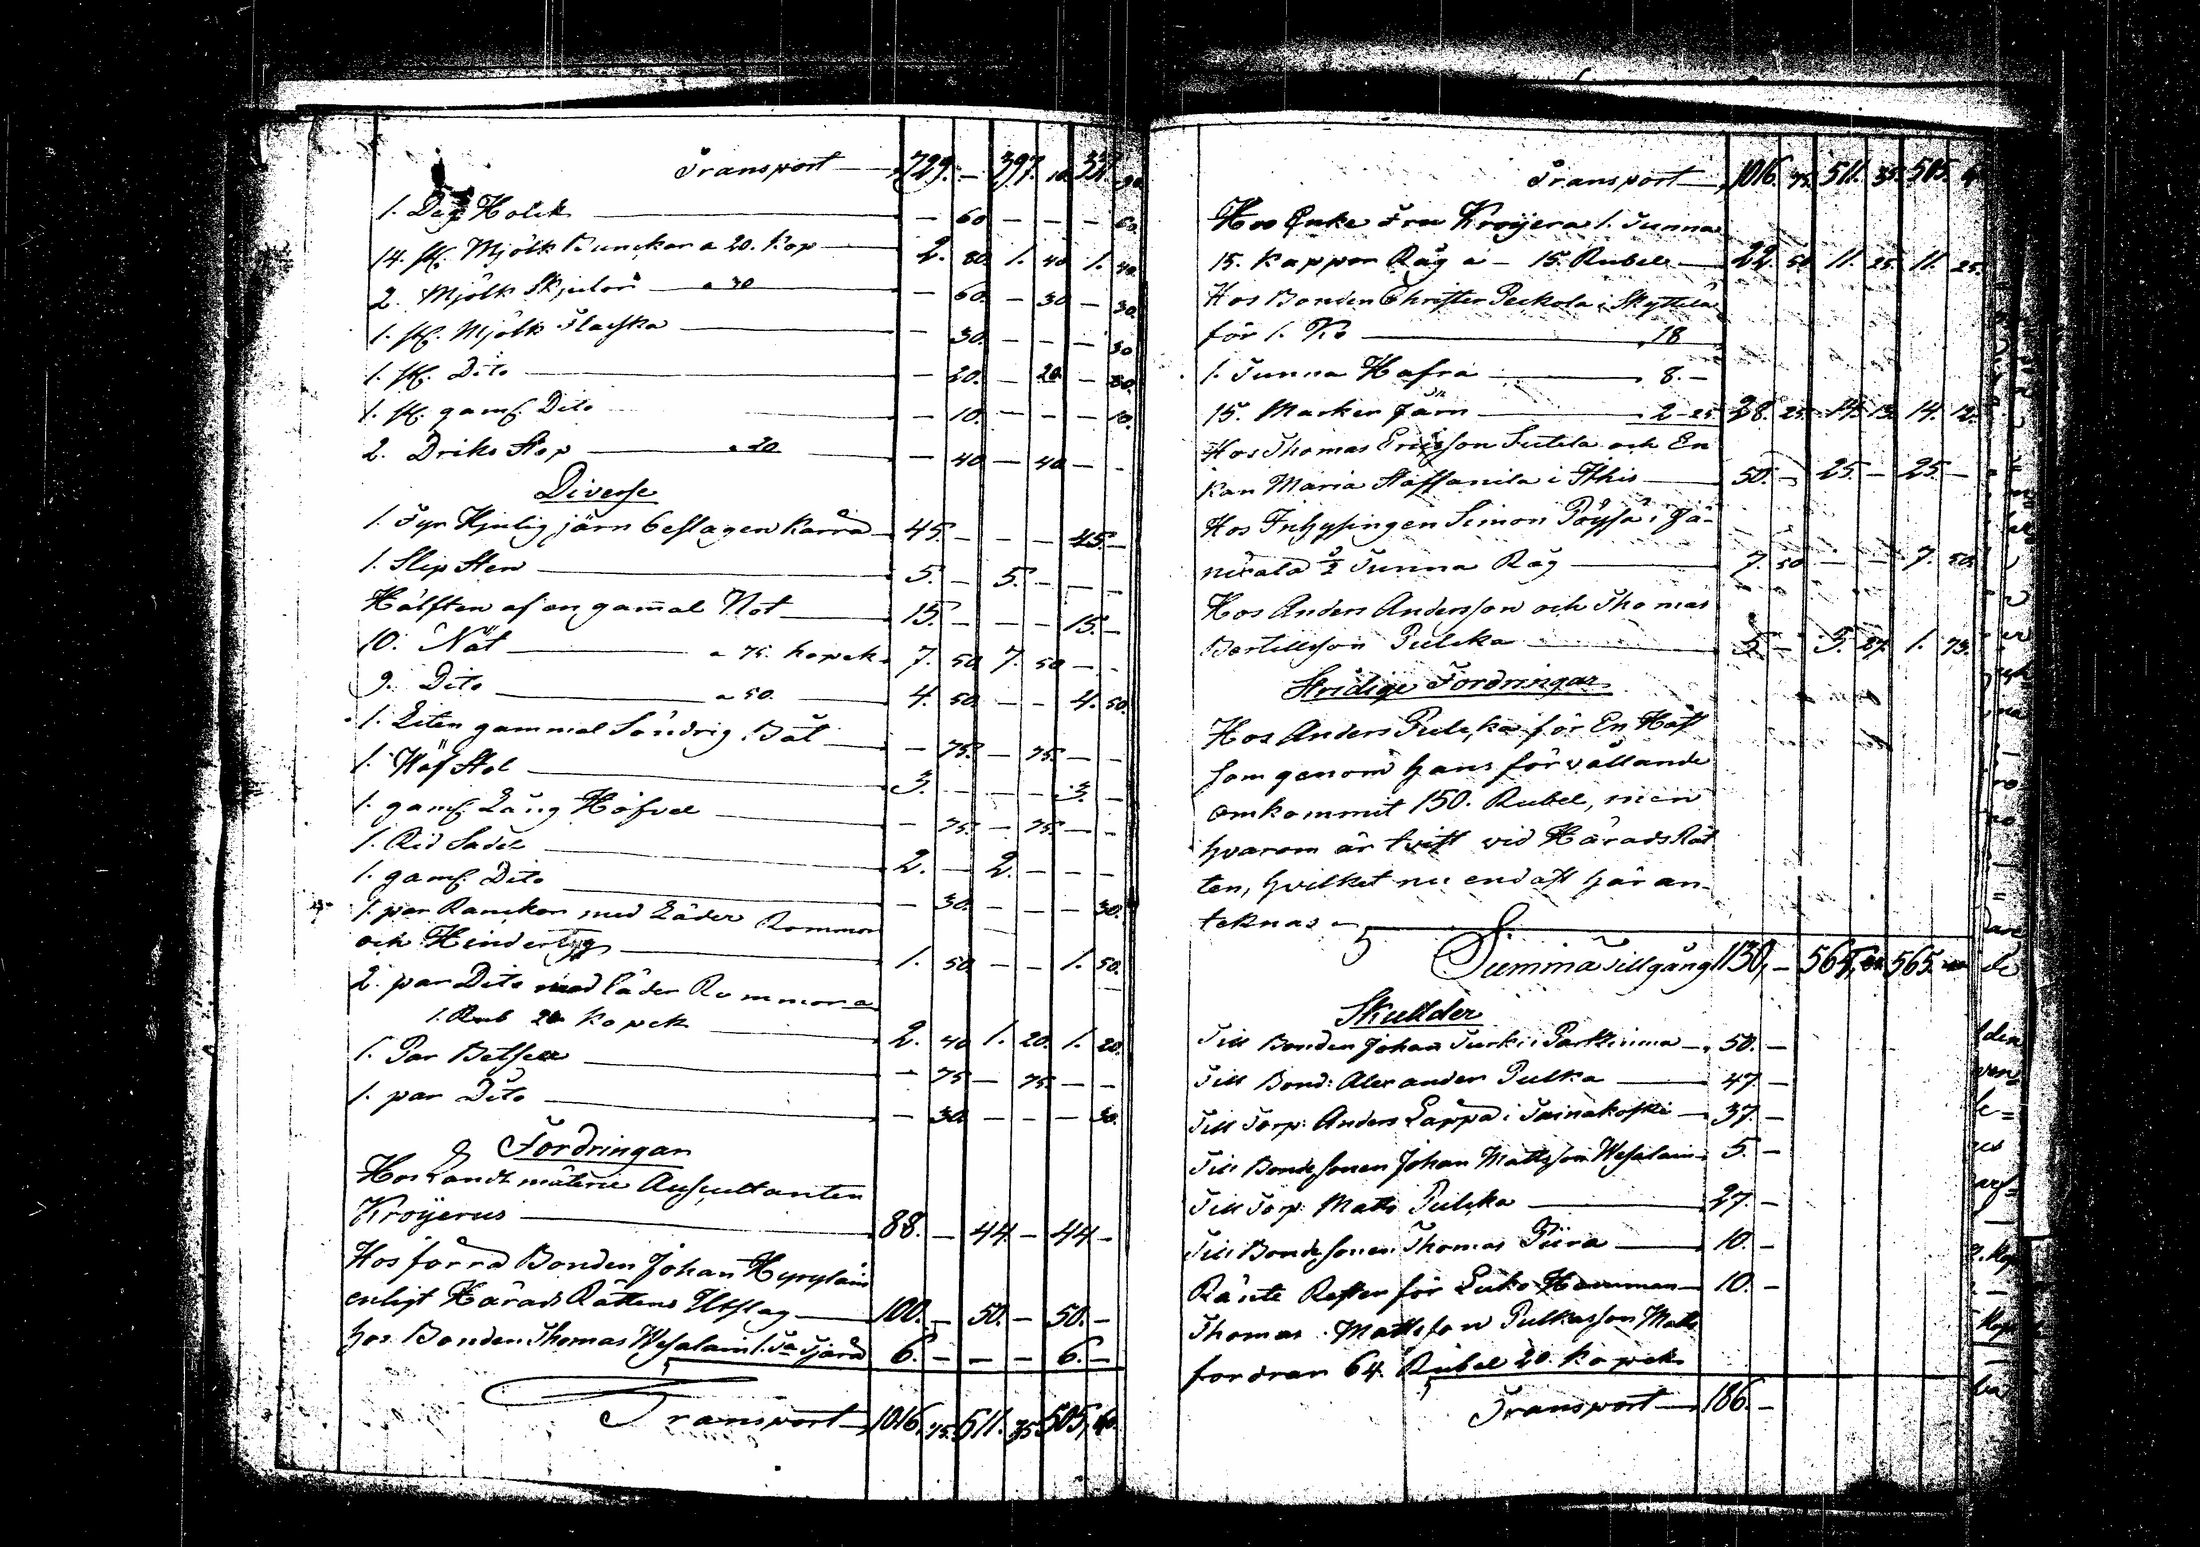 Transport — 729. — 397. 10. 331. 90.
1. Deg Holck — — 60 — — — 60.
14. st. Mjölk Bunckar a 20. Kop — 2. 80. 1. 40 1. 40.
2. Mjölk Skjulor — a 30 — 60. — 30 — 30.
1. st. Mjölk Flaska — — 30. — — — 30
1. st. Dito — — 20. — 20. —
1. st. gaml. Dito — 10. — — — 10.
2. Dricks Stop — a 20 — 40 — 40 — —
Diverse
1. Fyr Hjulig järn beslagen Kärra — 45. — — — 45. —
1. Slip Sten — 5. — 5. — — —
Hälften af en gam̄al Not — 15. — — — 15. —
10. Nät — a 75. kopek. 7. 50 7. 50 — —
9. Dito — a 50. 4. 50 — — 4. 50.
1. Liten gammal Söndrig Båt — — 75. — 75. — —
1. Wäf Stol — 3. — — — 3. —
1. gaml. Lång Höfvel — 75. — 75. — —
1. Rid Sadel — 2. — 2. — — —
1. gaml. Dito — 30. — — — 30.
1. par Rancker med Läder Rommor
och Hindertyg — 1. 50 — — 1. 50.
2. par Dito med läder Rommor a
1. Rub 20 kopek — 2. 40 1. 20. 1. 20.
1. Par Betsel — — 75 — 75 — —
1. par Dito — — 30. — — — 30.
Fordringar
Hos Landtmäterie Auscultanten
Kroijerus — 88. — 44 — 44 —
Hos förra Bonden Johan Hyryläin
enligt Härads Rättens Utslag — 100. — 50. — 50. —
hos Bonden Thomas Wesalain 1. Ta Tjära 6. — — — 6. —
Transport — 1016. 75. 511. 35 505. 40.
Transport — 1016. 75. 511. 35. 505. 40
Hos Enke Fru Kroijera 1. Tunna
15. Kappar Råg a — 15. Rubel — 22. 50 11. 25. 11. 25.
Hos Bonden Christer Peckola i Skyttelä
för 1. Ko — 18
1. Tunna Hafra — 8. —
15. Marker Järn — 2 25 28. 25. 14. 13. 14. 12.
Hos Thomas Ericsson Sutela och En
kan Maria Staffanila i Ithis — 50. — 25. — 25. —
Hos Inhysingen Simon Pöysä i Jä-
nickala ½ Tunna Råg — 7. 50 — — 7. 50.
Hos Anders Andersson och Thomas
Bertillsson Pulcka — 5 — 3. 27. 1. 73.
Stridige Fordringar
Hos Anders Pulcka för En Häst
som genom hans förvållande
omkommit 150. Rubel, men
hvarom är tvist vid Härads Rät
ten, hvilket nu endast här an-
teknas —
Summa Tillgång 1130. — 565. 565.
Skullder
Till Bonden Johan Turki i Parkinma — 50. —
Till Bond: Alexander Pulka — 47. —
Till Torp: Anders Lappa i Tainakoski — 37. —
Till Bonde Sonen Johan Mattsson Wesalain — 5. —
Till Torp: Matts Pulcka — 27. —
Till Bonde Sonen Thomas Piira — 10. —
Ränte Resten för Hemman — 10. —
Thomas Mattsson Pulkasson Matts
fordran 64. Rubel 20. kopek
Transport — 186. —